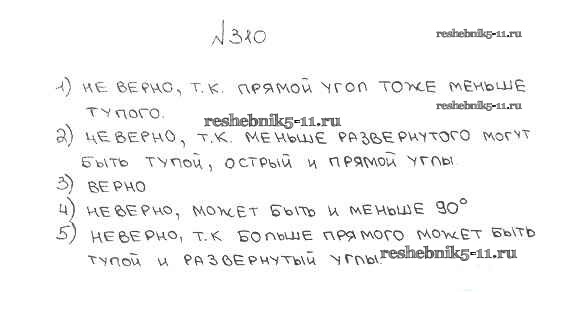 №310
reshebnik5-11.ru
1) НЕ ВЕРНО, Т.К. ПРЯМОЙ УГОЛ ТОЖЕ МЕНЬШЕ
reshebnik5-11.ru
ТУПОГО.
reshebnik5-11.ru
2) НЕВЕРНО, Т.К. МЕНЬШЕ РАЗВЕРНУТОГО МОГУТ
БЫТЬ ТУПОЙ, ОСТРЫЙ И ПРЯМОЙ УГЛЫ
3) ВЕРНО
4) НЕВЕРНО, МОЖЕТ БЫТЬ И МЕНЬШЕ 90°
5) НЕВЕРНО, Т.К БОЛЬШЕ ПРЯМОГО МОЖЕТ БЫТЬ
ТУПОЙ И РАЗВЕРНУТЫЙ УГЛЫ.
reshebnik5-11.ru